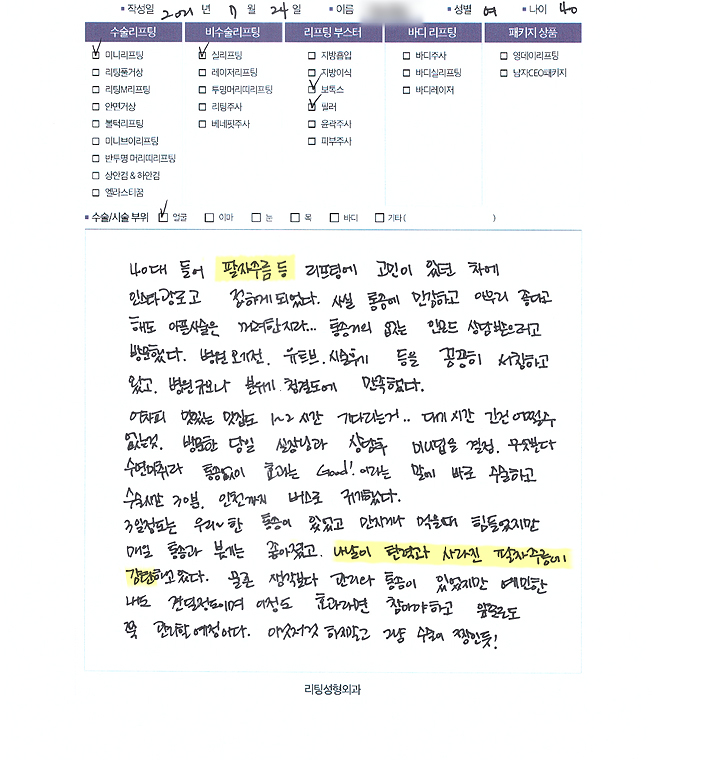 작성일 2021 년 7 월 24 일 이름 성별 여 나이 40
수술리프팅 비수술리프팅 리프팅 부스터 바디 리프팅 패키지 상품
미니리프팅 실리프팅 지방흡입 바디주사 영데이리프팅
리팅풀거상 레이저리프팅 지방이식 바디실리프팅 남자CEO패키지
리팅M리프팅 투명머리띠리프팅 보톡스 바디레이저
안면거상 리팅주사 필러
볼턱리프팅 베네핏주사 윤곽주사
미니브이리프팅 피부주사
반투명 머리띠리프팅
상안검 & 하안검
엘라스티꿈
수술/시술 부위 얼굴 이마 눈 목 바디 기타( )
40대 들어 팔자주름 등 리프팅에 고민이 있던 차에
인스타광고로 접하게 되었다. 사실 통증에 민감하고 아무리 좋다고
해도 아픈시술은 꺼려한지라... 통증거의 없는 상담받으려고
방문했다. 병원 오기전. 유튜브. 시술후기 등을 꼼꼼히 서칭하고
왔고. 병원규모나 분위기 청결도에 만족했다.
어차피 맛있는 맛집도 1~2시간 기다리는거.. 대기시간 긴건 어쩔수
없는것. 방문한 당일 실장님과 상담후 미니립을 결정. 무엇보다
수면마취라 통증없이 효과는 Good! 이라는 말에 바로 수술하고
수술시간 30분. 인천까지 버스로 귀가했다.
3일정도는 우리~한 통증이 있었고 만지거나 먹을때 힘들었지만
매일 통증과 붓기는 좋아졌고. 나날이 탄력과 사라진 팔자주름에
감탄하고 있다. 물론 생각보다 관리와 통증이 있었지만 예민한
나도 견딜정도이며 이정도 효과라면 참아야하고 앞으로도
쭉 관리할 예정이다. 이것저것 하지말고 그냥 수술이 짱인듯!
리팅성형외과